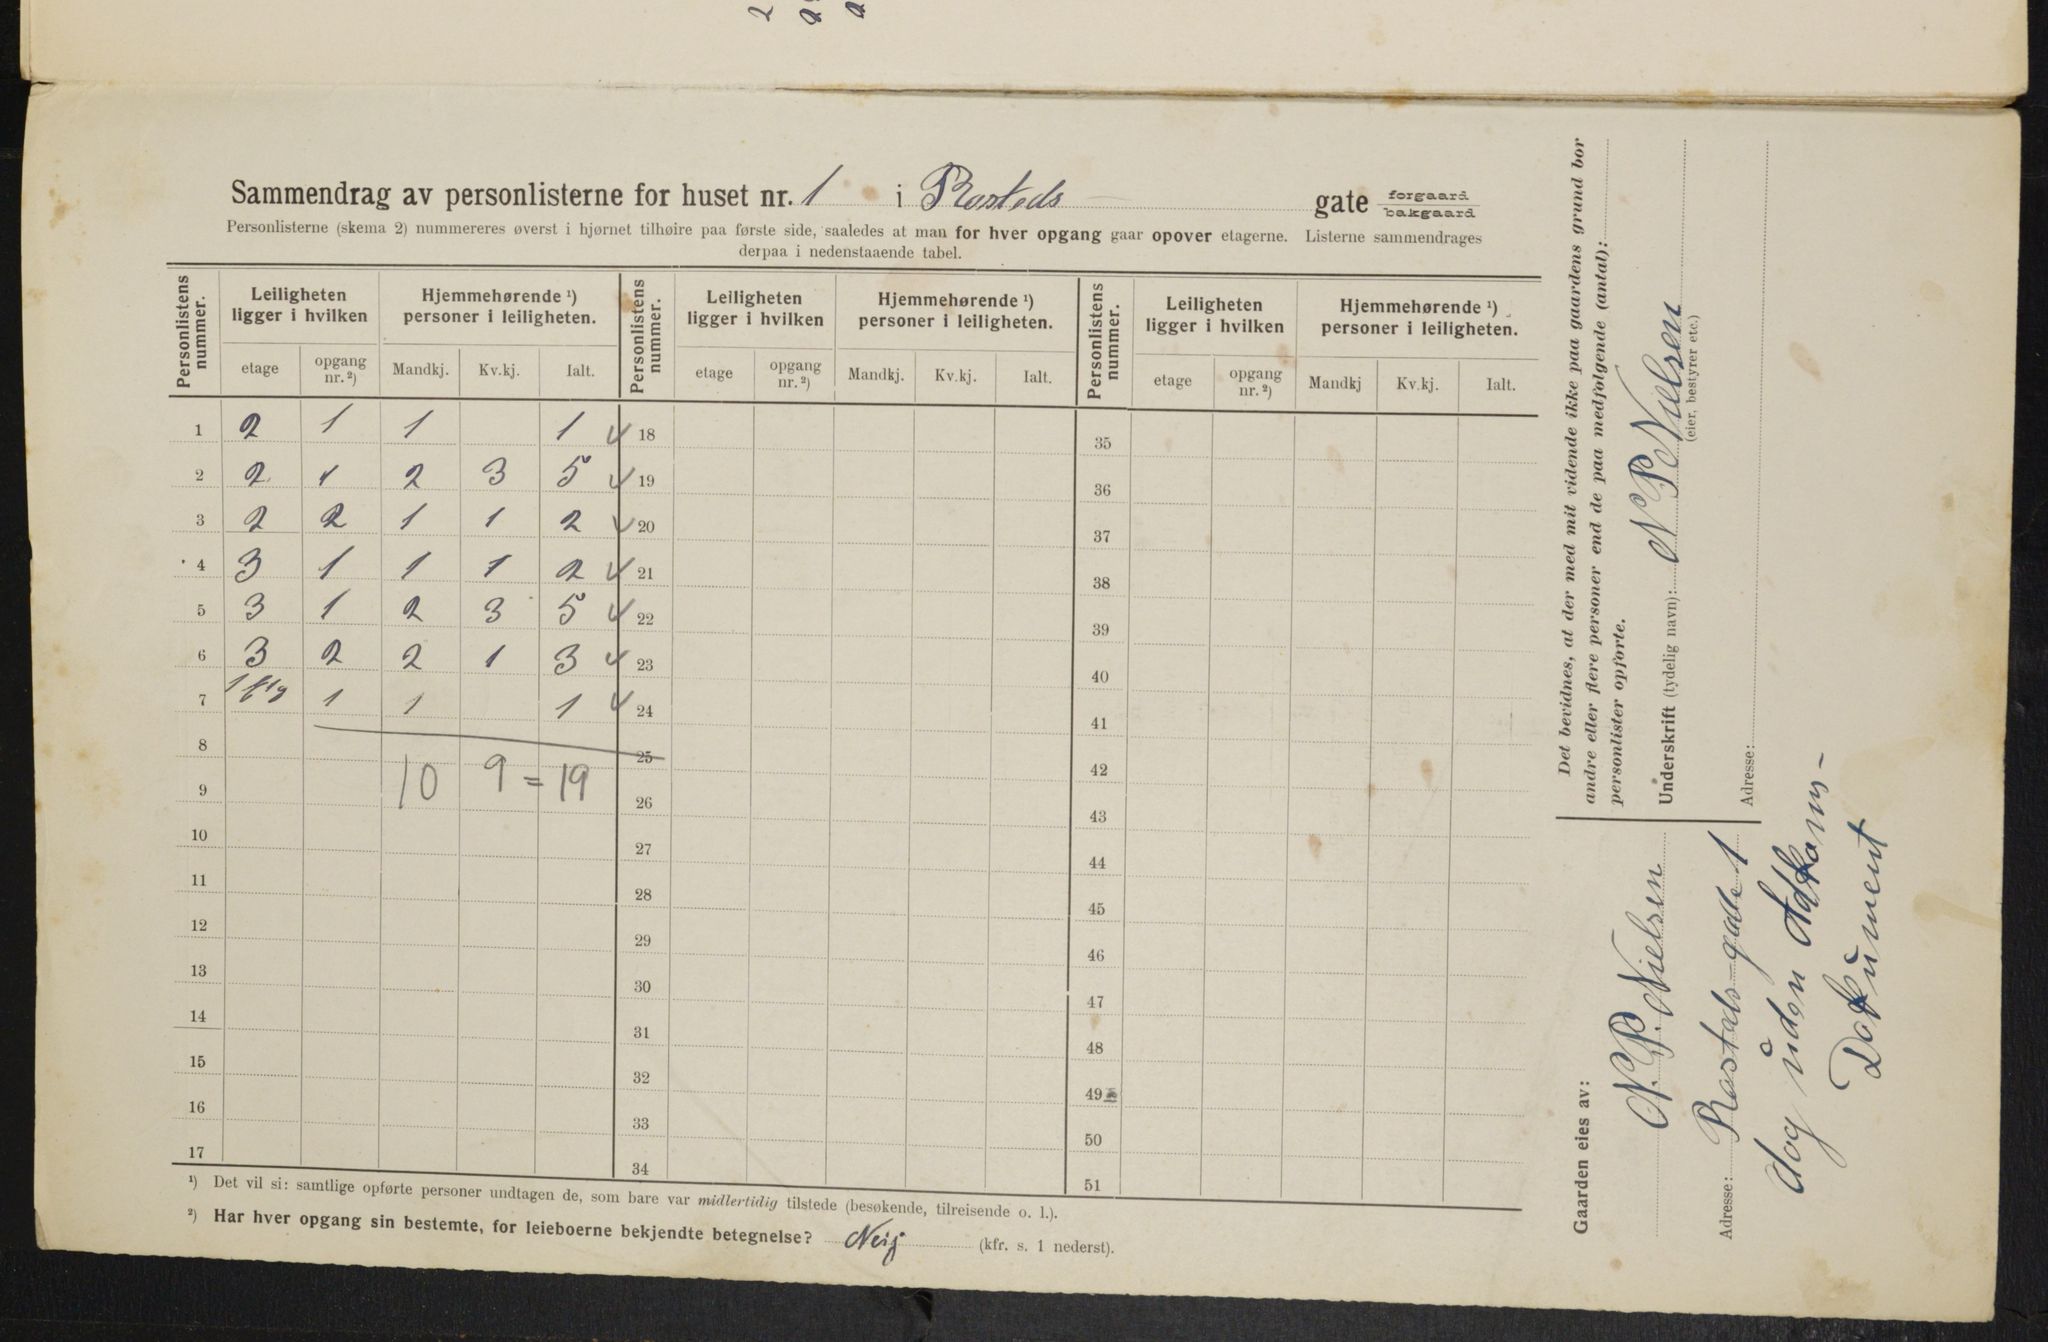 Sammendrag av personlisterne for huset nr. 1 i Rosteds gate forgaard bakgaard
Personlisterne (skema 2) nummereres øverst i hjørnet tilhøire paa første side, saaledes at man for hver opgang gaar opover etagerne. Listerne sammendrages
derpaa i nedenstaaende tabel.
Personlistens nummer. Leiligheten ligger i hvilken Hjemmehørende ¹) personer i leiligheten. Personlistens nummer. Leiligheten ligger i hvilken Hjemmehørende ¹) personer i leiligheten. Personlistens nummer. Leiligheten ligger i hvilken Hjemmehørende ¹) personer i leiligheten.
etage opgang nr. ²) Mandkj. Kv.kj. Ialt. etage opgang nr. ²) Mandkj. Kv.kj. Ialt. etage opgang nr. ²) Mandkj Kv.kj. Ialt.
1 2 1 1 1 18 35
2 2 1 2 3 5 19 36
3 2 2 1 1 2 20 37
4 3 1 1 1 2 21 38
5 3 1 2 3 5 22 39
6 3 2 2 1 3 23 40
7 1 1 1 1 24 41
8 25 42
9 10 9 = 19 26 43
10 27 44
11 28 45
12 29 46
13 30 47
14 31 48
15 32 49
16 33 50
17 34 51
¹) Det vil si: samtlige opførte personer undtagen de, som bare var midlertidig tilstede (besøkende, tilreisende o. l.).
²) Har hver opgang sin bestemte, for leieboerne bekjendte betegnelse? Neij (kfr. s. 1 nederst).
Det bevidnes, at der med mit vidende ikke paa gaardens grund bor
andre eller flere personer end de paa medfølgende (antal):
personlister opførte.
Underskrift (tydelig navn): N P Nielsen
(eier, bestyrer etc.)
Adresse:
Gaarden eies av:
N. P. Nielsen
Adresse: Rosteds gade 1
dog uden Adkoms-
Dokument